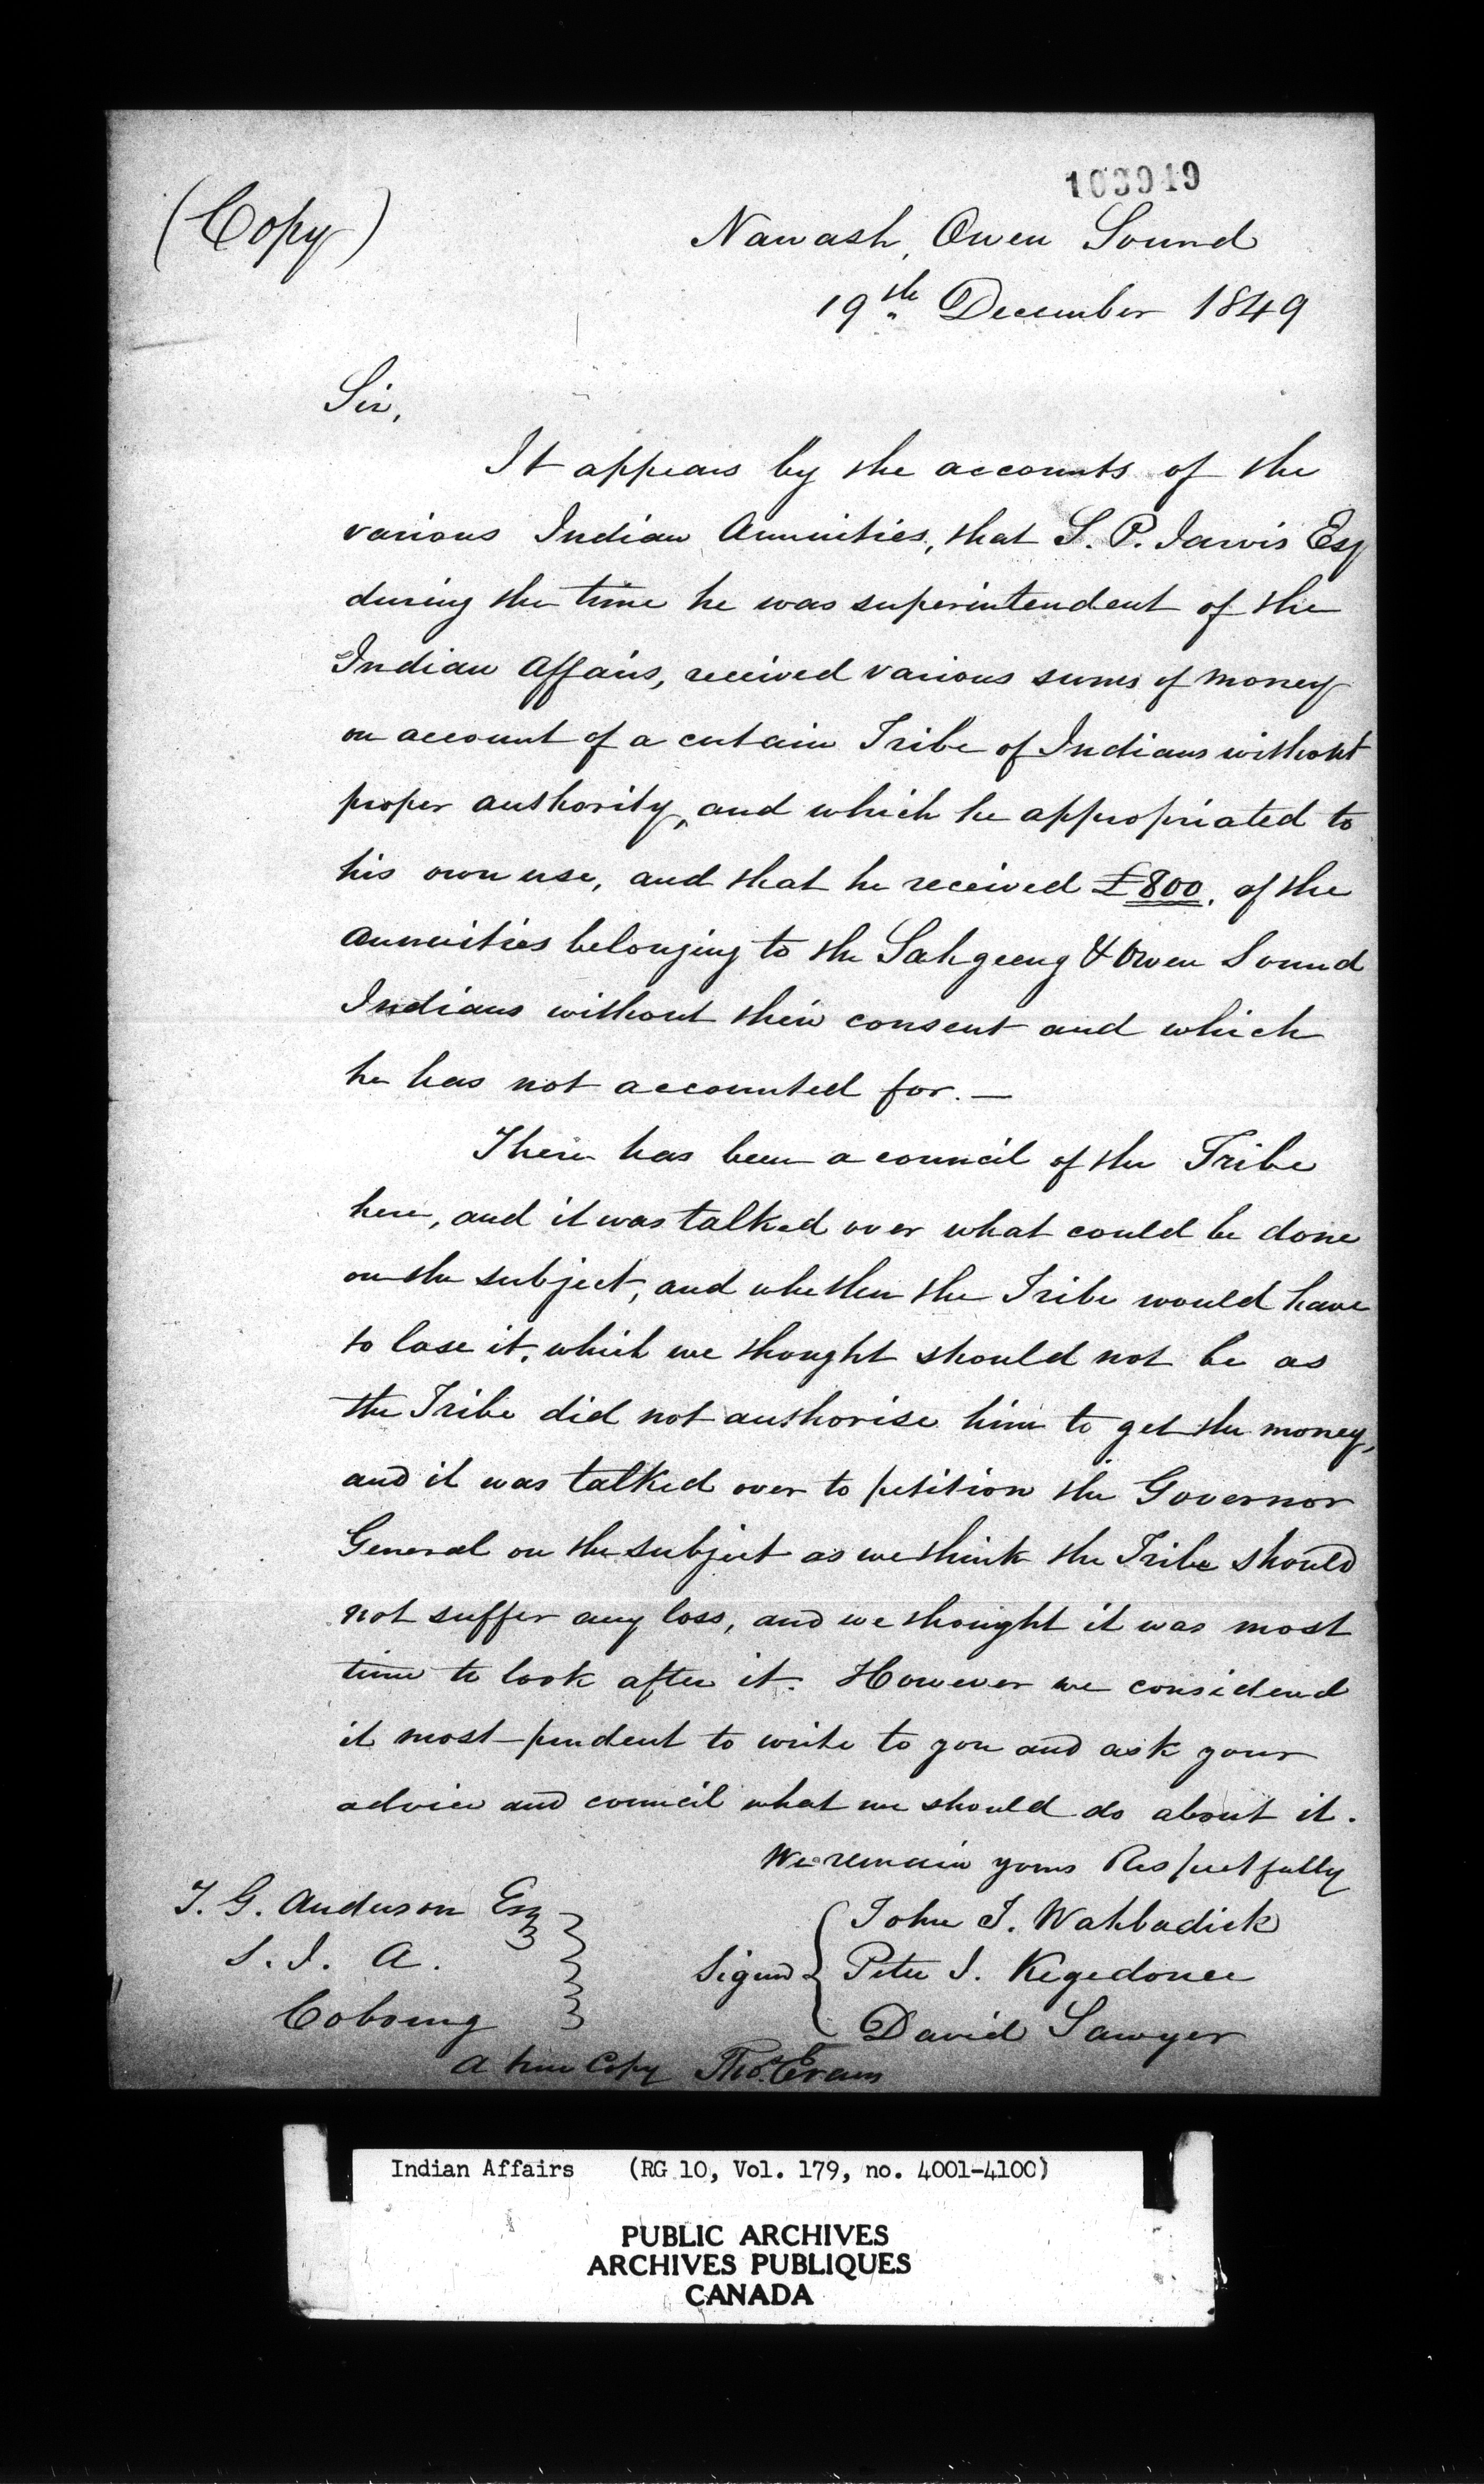 103949
(Copy)
Nawash, Owen Sound
19th December 1849
Sir,
It appears by the accounts of the
various Indian Annuities, that S. P. Jarvis Esq
during the time he was superintendent of the
Indian Affairs, received various sums of money
on account of a certain Tribe of Indians without
proper authority, and which he appropriated to
his own use, and that he received £800. of the
annuities belonging to the Sahgeeng & Owen Sound
Indians without their consent and which
he has not accounted for. —
There has been a council of the Tribe
here, and it was talked over what could be done
on the subject, and whether the Tribe would have
to lose it, which we thought should not be as
the Tribe did not authorise him to get the money,
and it was talked over to petition the Governor
General on the subject as we think the Tribe should
not suffer any loss, and we thought it was most
time to look after it. However we considered
it most prudent to write to you and ask your
advice and council what we should do about it.
We remain yours Respectfully
T. G. Anderson Esq
S. I. A.
Cobourg
Signed
John T. Wahbadick
Peter J. Kegedonce
David Sawyer
A true Copy Thos. Evans
Indian Affairs (RG 10, Vol. 179, no. 4001-4100)
PUBLIC ARCHIVES
ARCHIVES PUBLIQUES
CANADA